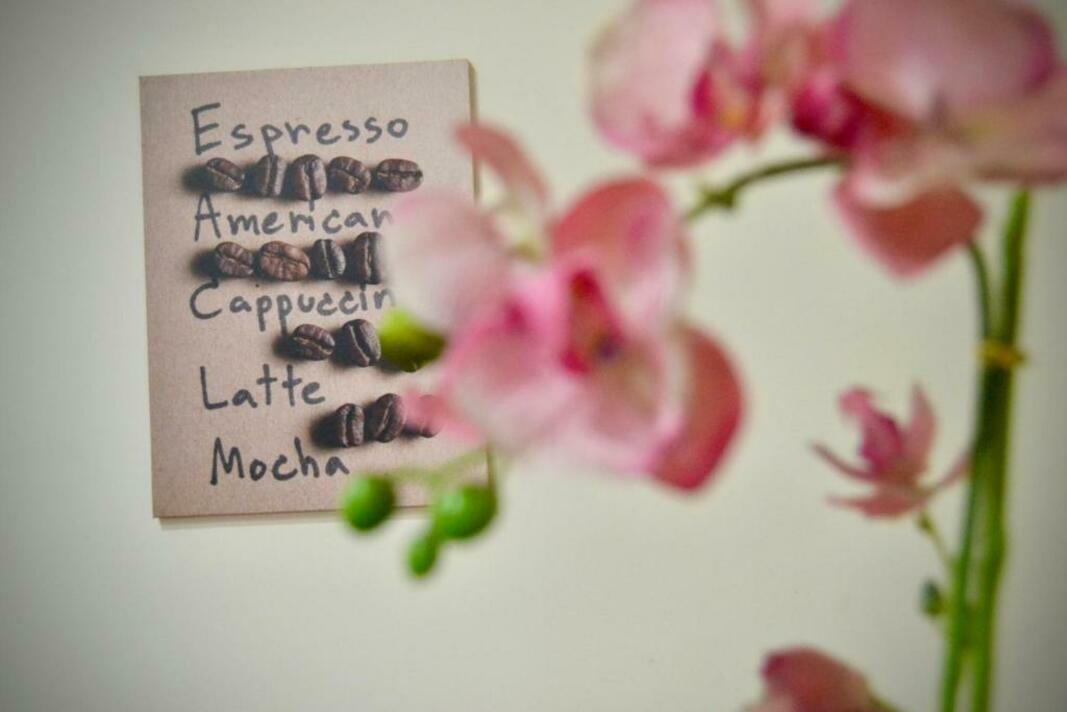 Espresso
American
Cappuccin
Latte
Mocha